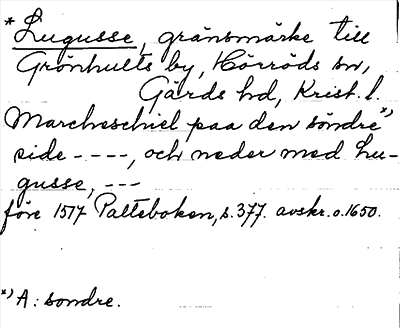 *Lugusse, gränsmärke till
Grönhults by, Hörröds sn,
Gärds hd, Krist. l.
Marcheschiel paa den söndre*)
side - - - -, och neder med Lu-
gusse, - - -
före 1517 Palteboken, s. 377. avskr. o. 1650.
*) A: sondre.